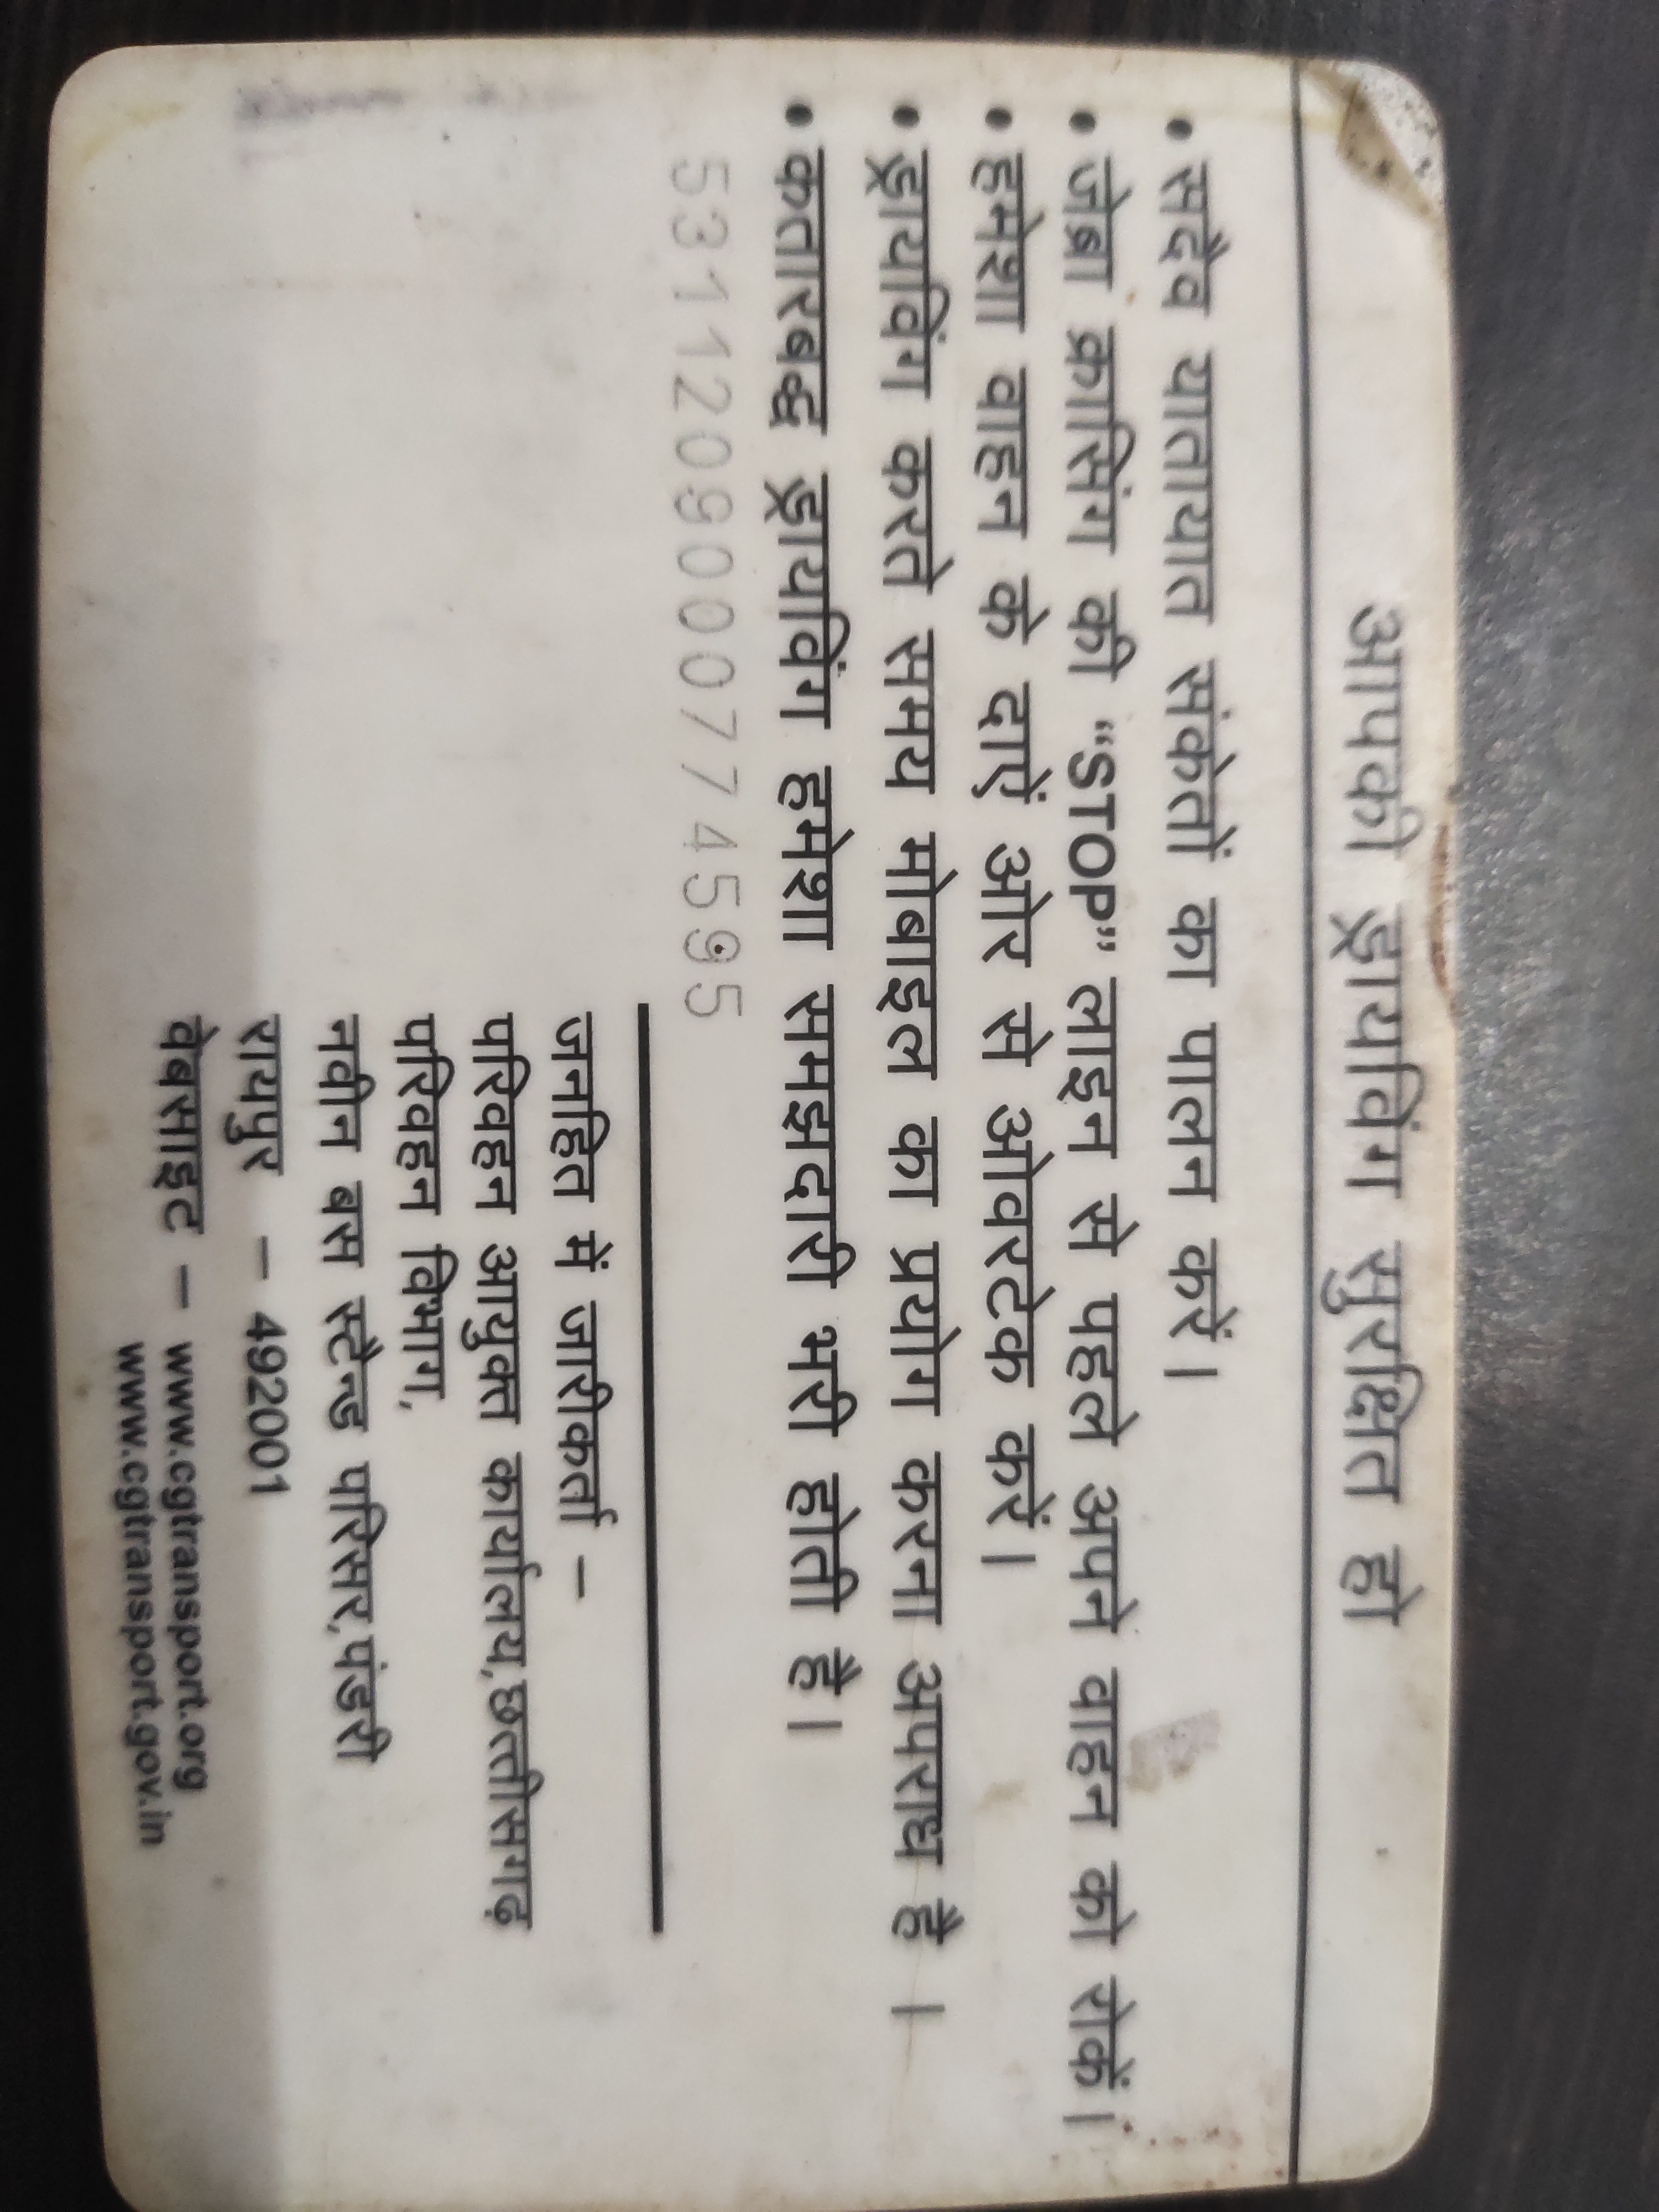 आपकी ड्रायविंग सुरक्षित हो
• सदैव यातायात संकेतों का पालन करें।
• जेब्रा क्रासिंग की “STOP” लाइन से पहले अपने वाहन को रोकें।
• हमेशा वाहन के दाएं ओर से ओवरटेक करें।
• ड्रायविंग करते समय मोबाइल का प्रयोग करना अपराध है ।
• कतारबद्ध ड्रायविंग हमेशा समझदारी भरी होती है।
5311209000774595
जनहित में जारीकर्ता –
परिवहन आयुक्त कार्यालय,छत्तीसगढ़
परिवहन विभाग,
नवीन बस स्टैन्ड परिसर,पंडरी
रायपुर – 492001
वेबसाइट – www.cgtransport.org
www.cgtransport.gov.in